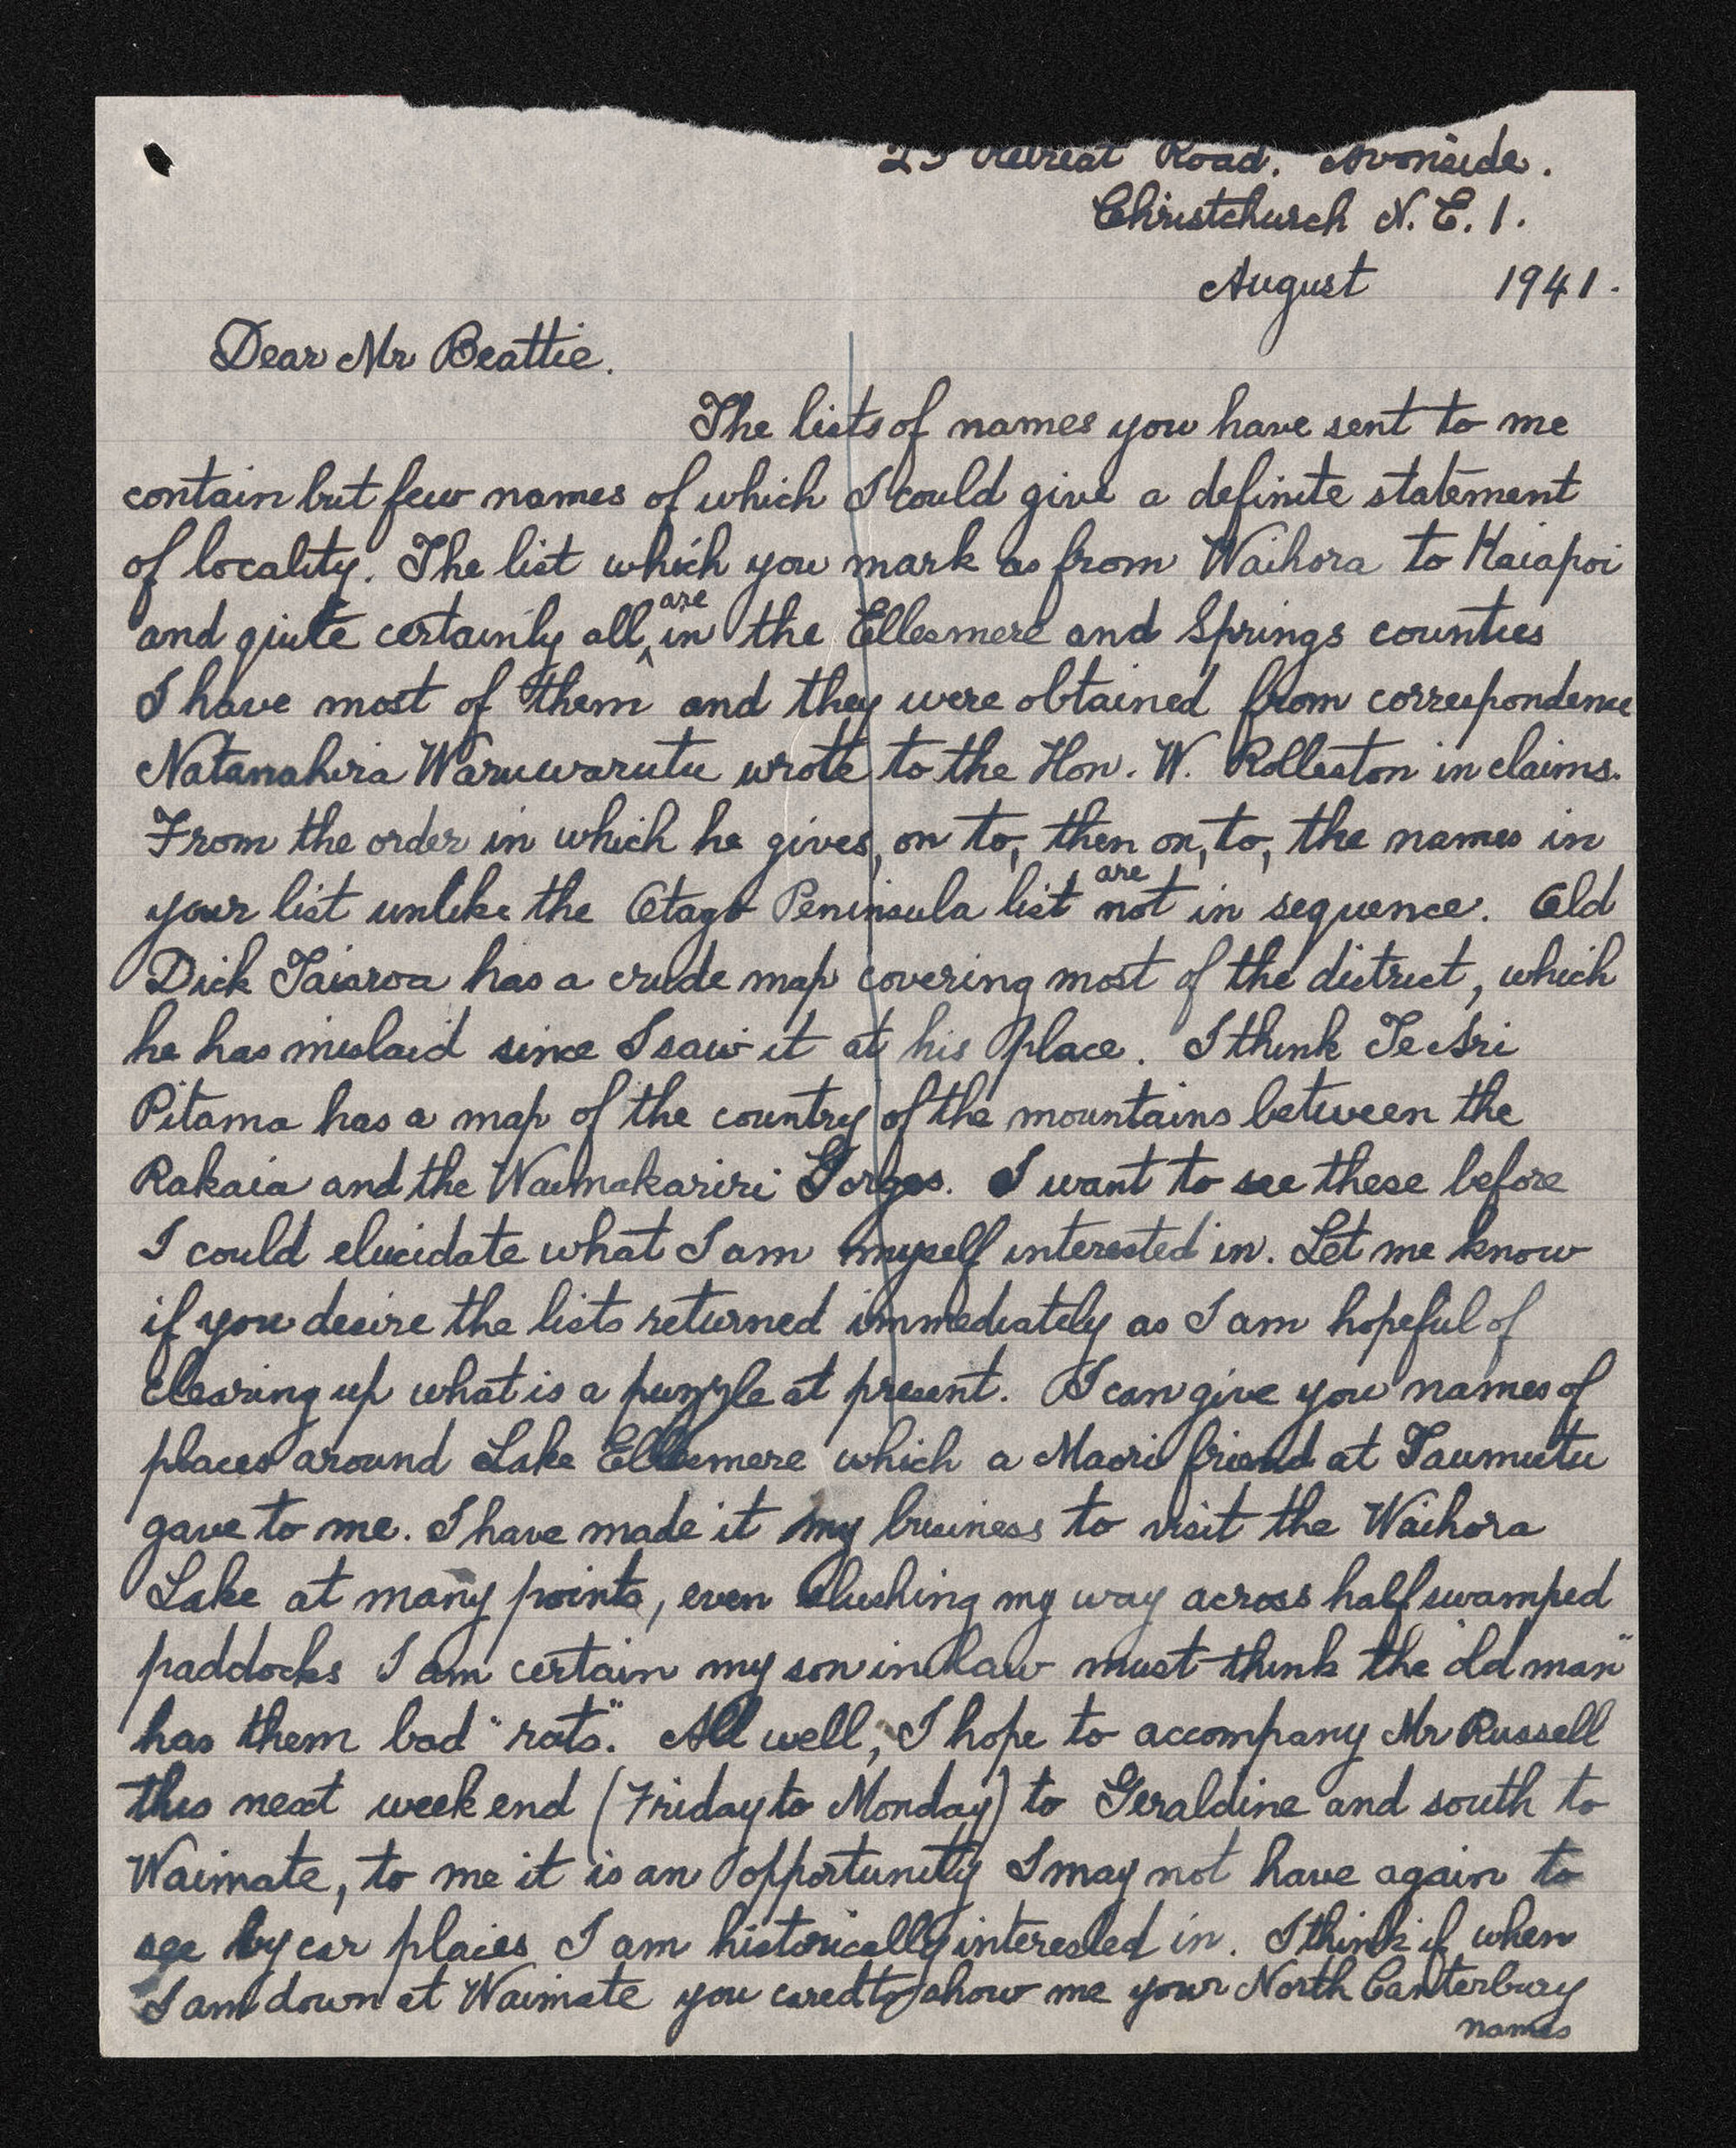 Retreat Road. Avonside.
Christchurch N. E. 1.
August 1941.
Dear Mr Beattie.
The lists of names you have sent to me
contain but few names of which I could give a definite statement
of locality. The list which you mark as from Waihora to Kaiapoi
are
and quite certainly all in the Ellesmere and Springs counties
I have most of them and they were obtained from correspondence
Natanahira Waruwarutu wrote to the Hon. W. Rolleston in claims.
From the order in which he gives, on to, then on, to, the names in
are
your list unlike the Otago Peninsula list not in sequence. Old
Dick Taiaroa has a crude map covering most of the district, which
he has mislaid since I saw it at his place. I think Te Ari
Pitama has a map of the country of the mountains between the
Rakaia and the Waimakariri Gorges. I want to see these before
I could elucidate what I am myself interested in. Let me know
if you desire the lists returned immediately as I am hopeful of
clearing up what is a puzzle at present. I can give you names of
places around Lake Ellesmere which a Maori friend at Taumutu
gave to me. I have made it my business to visit the Waihora
Lake at many points, even slushing my way across half swamped
paddocks I am certain my son in law must think the "old man"
has them bad "rats". All well, I hope to accompany Mr Russell
this next week end (Friday to Monday) to Geraldine and south to
Waimate, to me it is an opportunity I may not have again to
see by car places I am historically interested in. I think if when
I am down at Waimate you cared to show me your North Canterbury
names